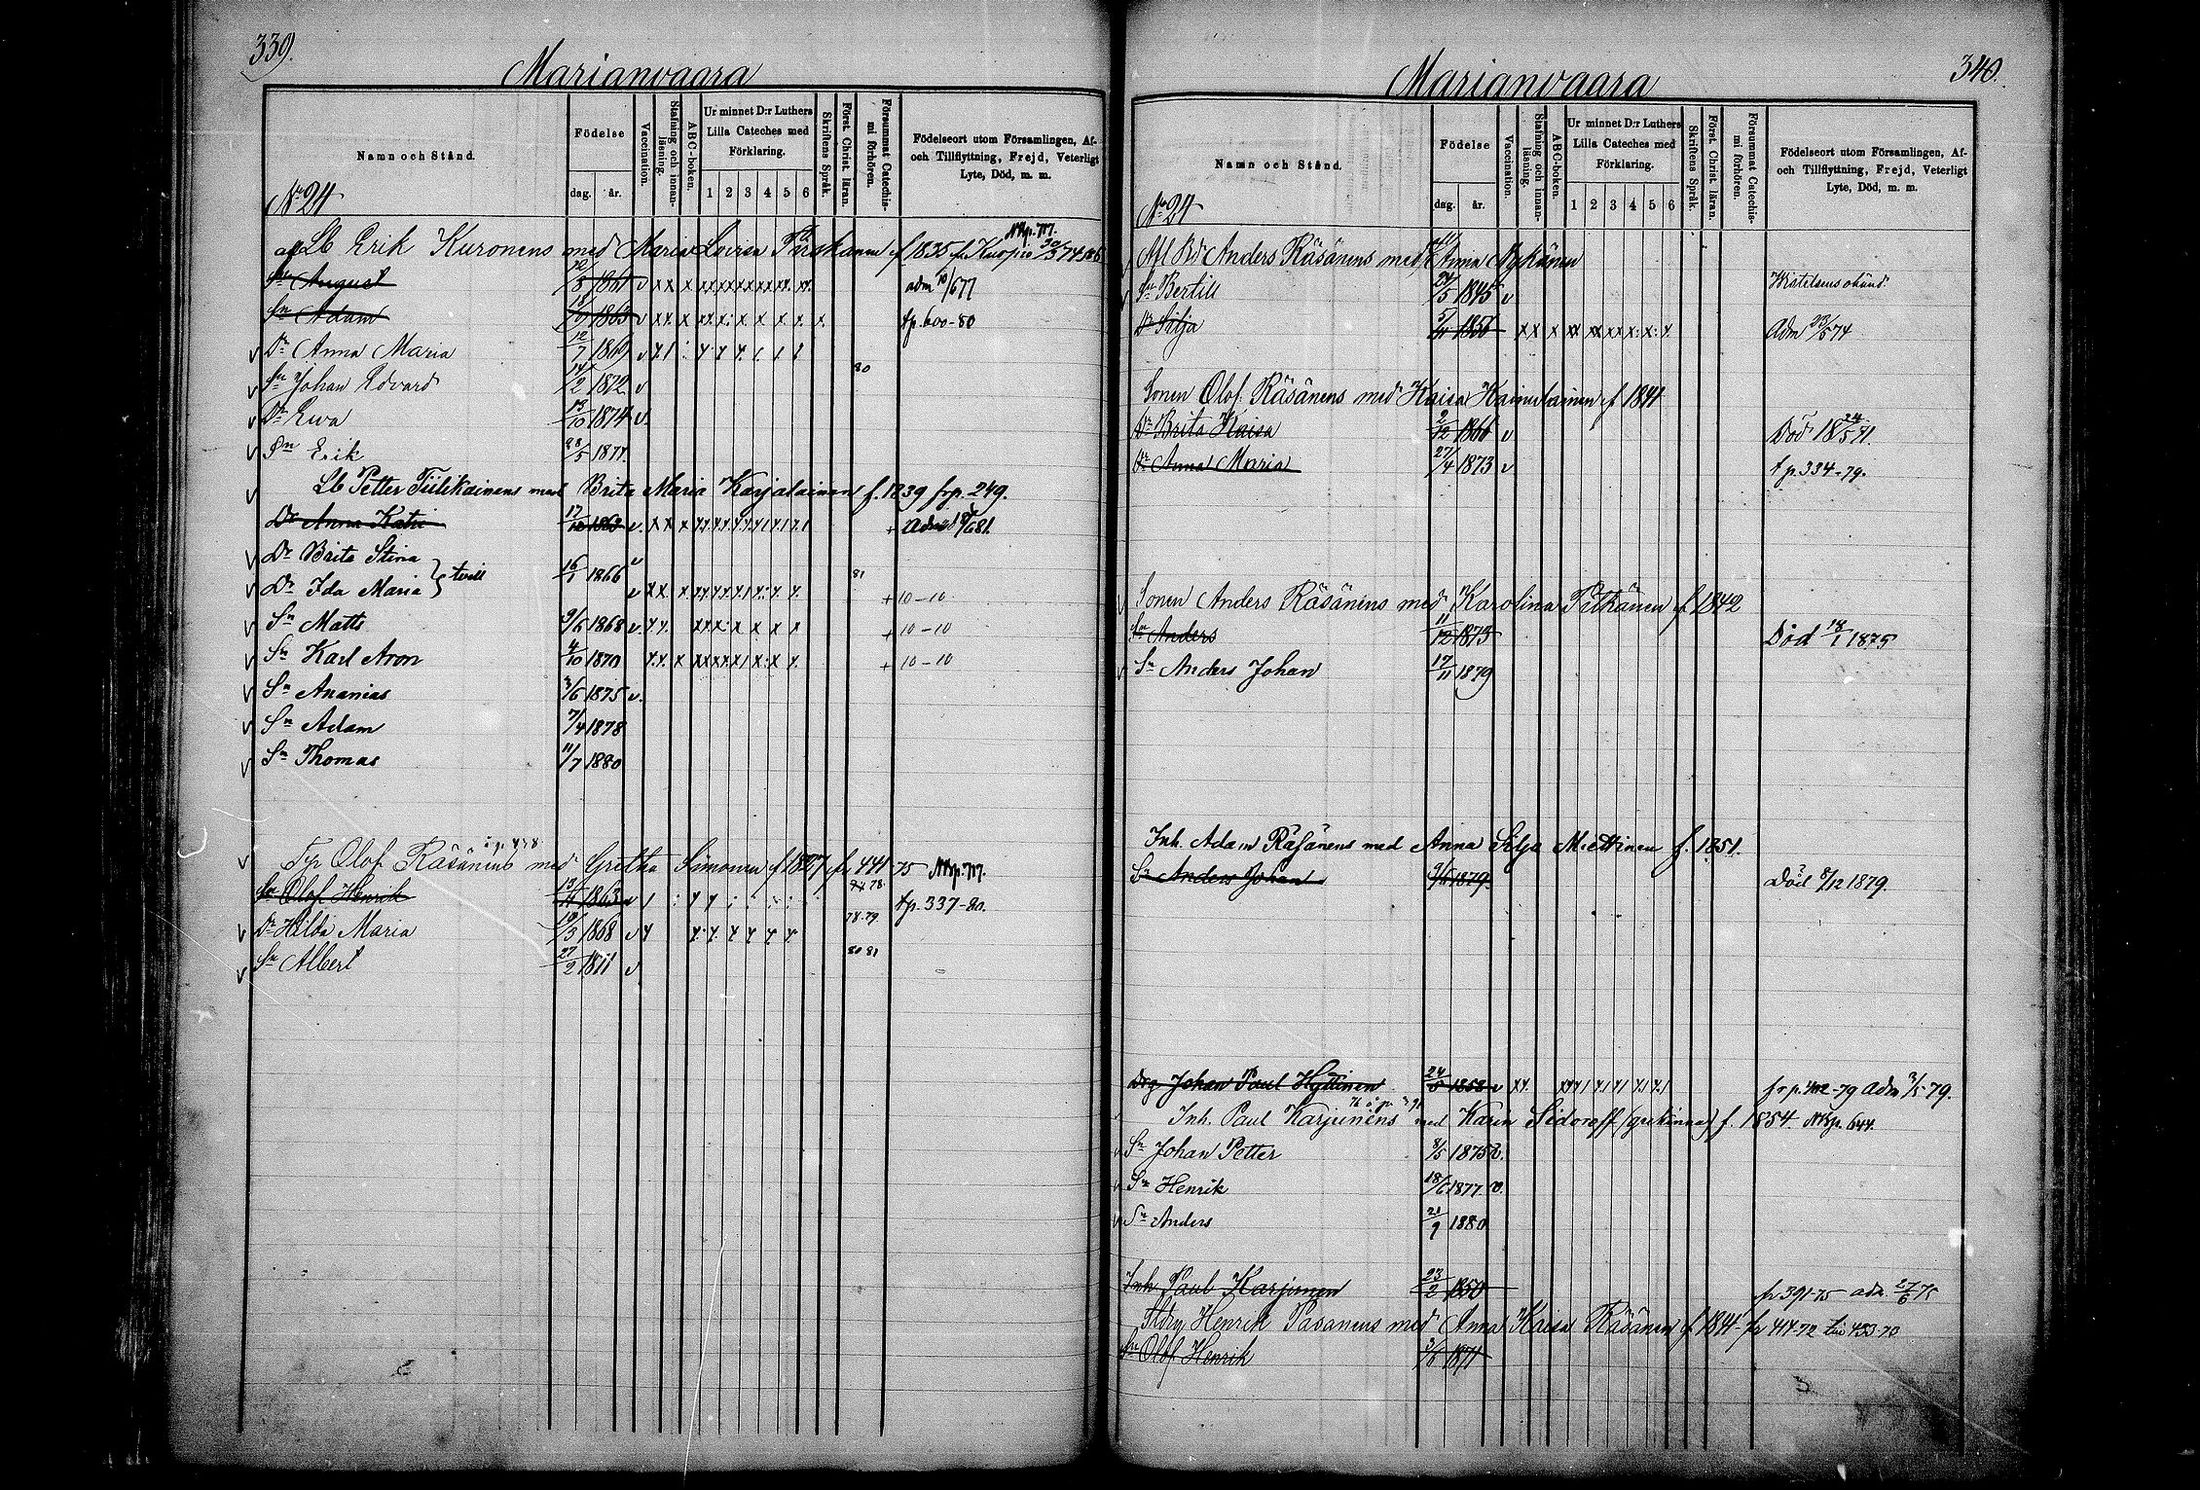 339.
Marianvaara
Namn och Stånd.
Födelse
dag. år.
Vaccination.
Stafning och innanläsning.
ABC-boken.
Ur minnet D:r Luthers Lilla Cateches med Förklaring.
1 2 3 4 5 6
Skriftens Språk.
Först. Christ. läran.
Försummat Catechismi förhören.
Födelseort utom Församlingen, Af- och Tillflyttning, Frejd, Veterligt Lyte, Död, m. m.
No 24
Lb Erik Kuronens med Maria Lovisa f 1835 fr Kuopio
Sn August 1861 adm
Sn Adam 1863 tp. 600-80
Dr Anna Maria 12/7 1869
80
Sn Johan Edvard 14/2 1872
Dr Ewa 13/10 1874
Sn Erik 28/5 1877.
Lb Petter Tiilikainens med Brita Maria Karjalainen f. 1839 frp. 249.
Dr Anna Kaisa 17/10 1863
Dr Brita Stina
} tvill 16/1 1866 81
Dr Ida Maria + 10-10
Sn Matts 9/6 1868 + 10-10
Sn Karl Aron 4/10 1870 + 10-10
Sn Ananias 3/6 1875
Sn Adam 7/4 1878
Sn Thomas 11/7 1880
Olof Räsänens med Gretha Simonen f 1827 fr 441-75
Sn Olof Henrik 1863 78. tp. 337-80.
Dr Hilda Maria 19/3 1868 78-79
Sn Albert 27/2 1871 80 81
340.
Marianvaara
Namn och Stånd.
Födelse
dag. år.
Vaccination.
Stafning och innanläsning.
ABC-boken.
Ur minnet D:r Luthers Lilla Cateches med Förklaring.
1 2 3 4 5 6
Skriftens Språk.
Först. Christ. läran.
Försummat Catechismi förhören.
Födelseort utom Församlingen, Af- och Tillflyttning, Frejd, Veterligt Lyte, Död, m. m.
No 24
Afl Bd Anders Räsänens med Anna Nykänen
Sn Bertill 24/5 1845
Dr Silja 1856 Adm 23/5 74
Sonen Olof Räsänens med Kaisa Kainulainen f 1841
Dr Brita Kaisa 2/12 1866 Död 18 24/5 71.
Dr Anna Maria 27/4 1873 tp. 334-79.
Sonen Anders Räsänens med Karolina Pitkänen f 1842
Sn Anders 11/12 1873 Död 18/1 1875
Sn Anders Johan 17/11 1879
Inh. Adam Räsänens med Anna Silja Miettinen f. 1851.
Sn Anders Johan 1879. Död 8/12 1879.
Drg Johan Paul Hyttinen 24/5 1858 -79 Adm 3/5-79.
Inh. Paul Karjunens med Karin Sidoroff (grekinna) f. 1854 NBp. 644.
Sn Johan Petter 8/5 1875 v.
Sn Henrik 18/6 1877 v.
Sn Anders 21/9 1880
Inh Paul Karjunen 23/2 1850 fr 391-75 adm. 27/6 75
Henrik Pasanens med Anna Kaisa Räsänen f 1841 fr 414-72
Sn Olof Henrik 1871